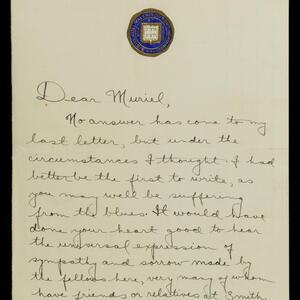 Dear Muriel,
No answer has come to my
last letter, but under the
circumstances I thought I had
better be the first to write, as
you may well be suffering
from the blues. It would have
done your heart good to hear
the universal expression of
sympathy and sorrow made by
the fellows here, very many of whom
have friends or relatives at Smith